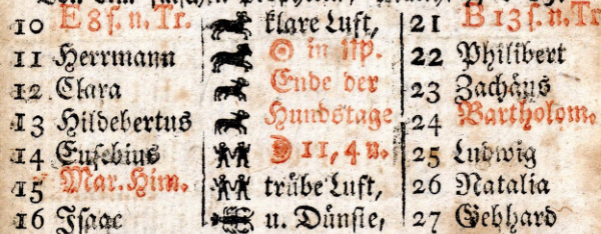 10 E 8 ſ. n. Tr. klare Luft, 21 B 13 ſ. n. Tr
11 Herrmann ☉ in ♍. 22 Philibert
12 Clara Ende der 23 Zachäus
13 Hildebertus Hundstage 24 Bartholom.
14 Euſebius ☽ 11, 4 u. 25 Ludwig
15 Mar. Him. trübe Luft, 26 Natalia
16 Iſaac u. Dünſte, 27 Gebhard